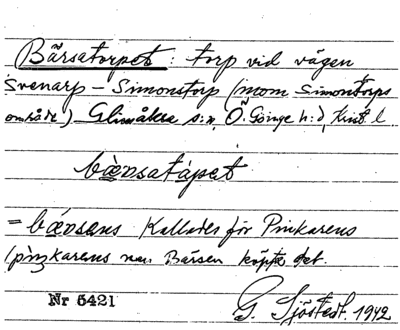 Bärsatorpet: torp vid vägen
Svenarp – Simonstorp (inom Simontorps
område) Glimåkra s:n, Ö. Göinge h:d, Krist. l.
bæ̀rsatåpet
= bǽrsens Kallades för Pinkarens
(piŋkarens nan Bärsen köpte det.
Nr 5421
G. Sjöstedt. 1942